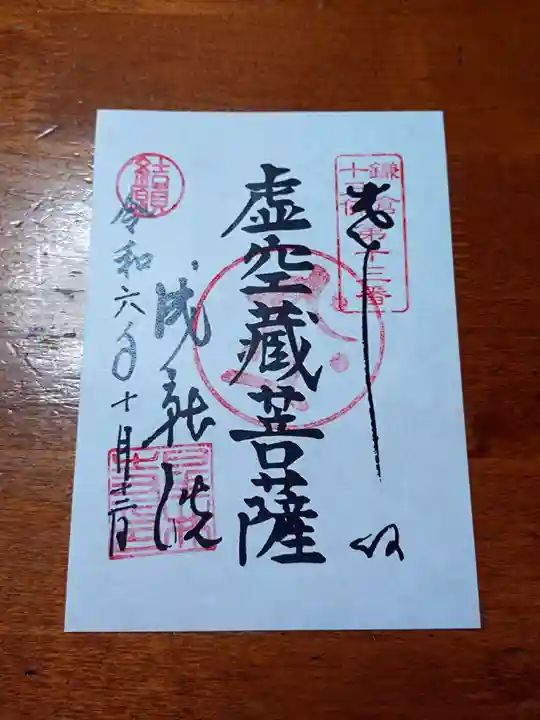 鎌倉
十三仏
第十三番
奉拝
虚空蔵菩薩
成就院
結願
令和六年十月十二日